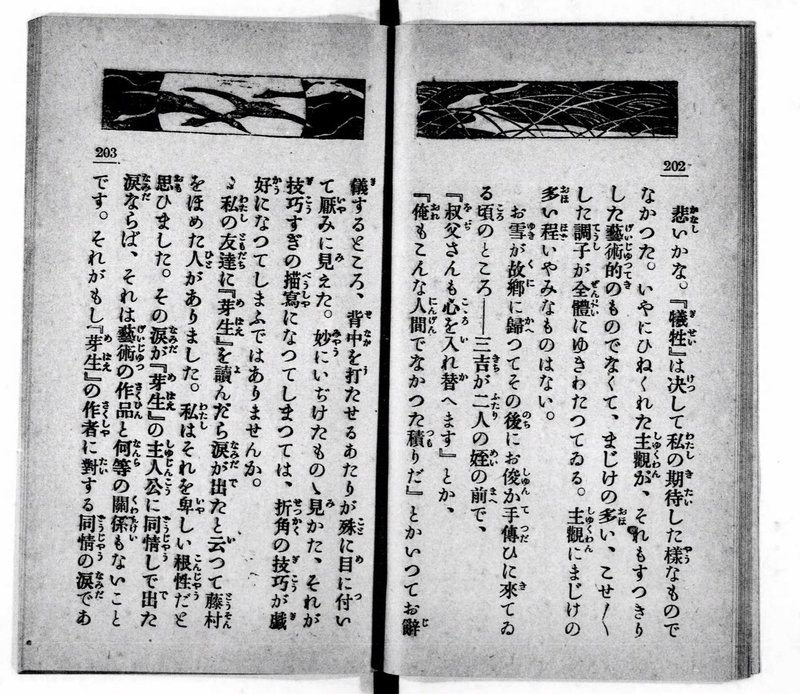 202
悲いかな。『犠牲』は決して私の期待した樣なもので
なかつた。いやにひねくれた主觀が、それもすつきり
した藝術的のものでなくて、まじけの多い、こせ〳〵
した調子が全體にゆきわたつてゐる。主觀にまじけの
多い程いやみなものはない。
お雪が故郷に歸つてその後にお俊が手傳ひに來てゐ
る頃のところ――三吉が二人の姪の前で、
『叔父さんも心を入れ替へます』とか、
『俺もこんな人間でなかつた積りだ』とかいつてお辭
203
儀するところ、背中を打たせるあたりが殊に目に付い
て厭みに見えた。妙にいぢけたものゝ見かた、それが
技巧すぎの描寫になつてしまつては、折角の技巧が戯
好になつてしまふではありませんか。
私の友達に『芽生』を讀んだら涙が出たと云つて藤村
をほめた人がありました。私はそれを卑しい根性だと
思ひました。その涙が『芽生』の主人公に同情しで出た
涙ならば、それは藝術の作品と何等の關係もないこと
です。それがもし『芽生』の作者に對する同情の涙であ